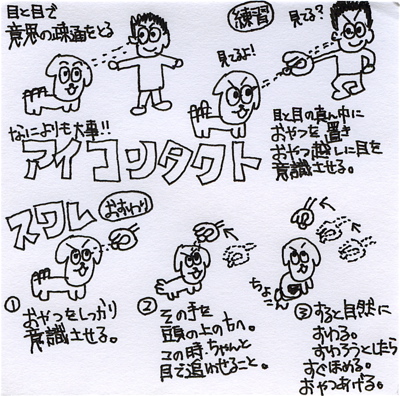 目と目で
意思の疎通をとる
練習
見てる?
見てるよ!
なによりも大事!!
アイコンタクト
目と目の真ん中に
おやつを置き
おやつ越しに目を
意識させる。
スワレ
おすわり
① おやつをしっかり
意識させる。
② その手を
頭の上の方へ。
この時、ちゃんと
目で追わせること。
ちょこ
③ すると自然に
すわる。
すわろうとしたら
すぐほめる。
おやつあげる。